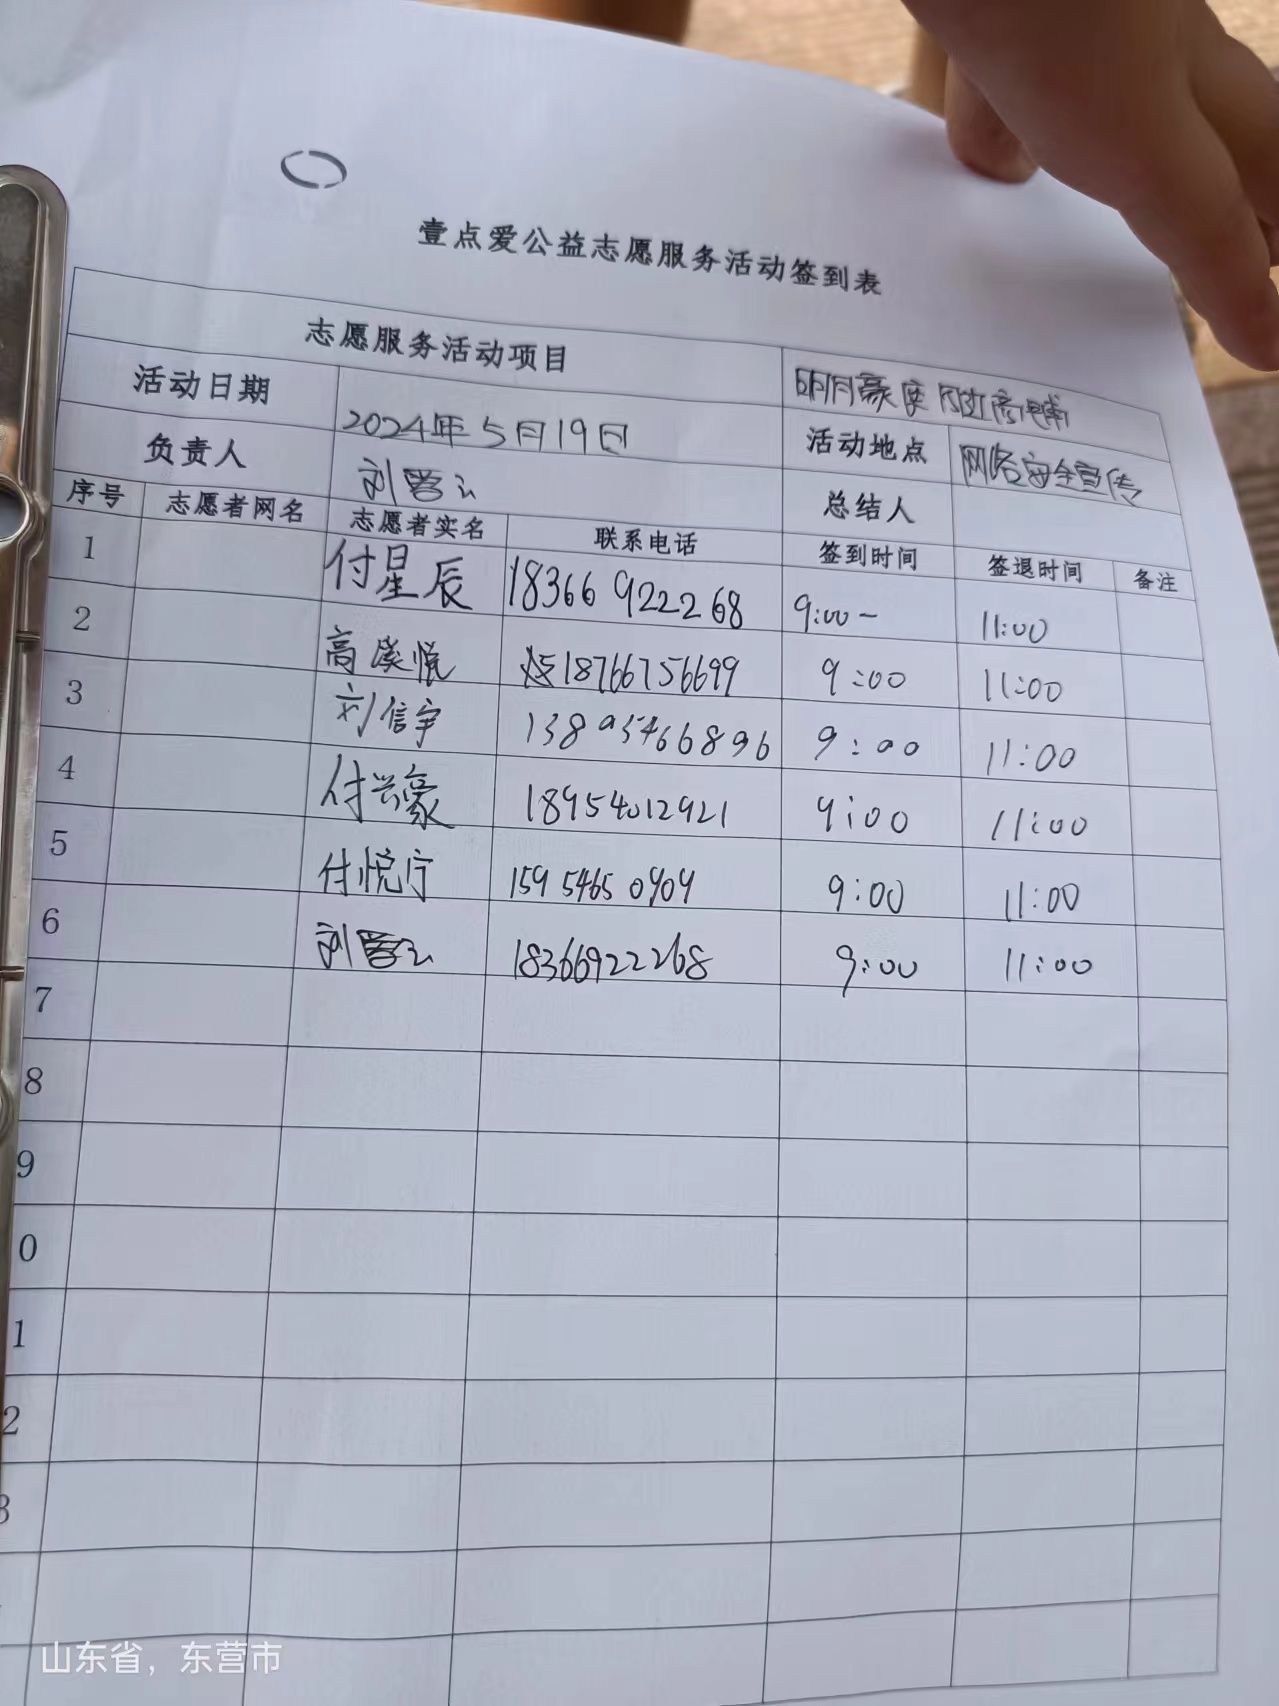 壹点爱公益志愿服务活动签到表
志愿服务活动项目 明月豪庭
活动日期 2024年5月19日 活动地点 网络安全宣传
负责人 刘 总结人
序号 志愿者网名 志愿者实名 联系电话 签到时间 签退时间 备注
1 付星辰 18366922268 9:00- 11:00
2 高溪悦 18766756699 9:00 11:00
3 刘信宇 13895466896 9:00 11:00
4 付兴豪 18954012921 9:00 11:00
5 付悦宁 15954650909 9:00 11:00
6 刘 18366922268 9:00 11:00
7
8
9
0
1
2
3
山东省，东营市